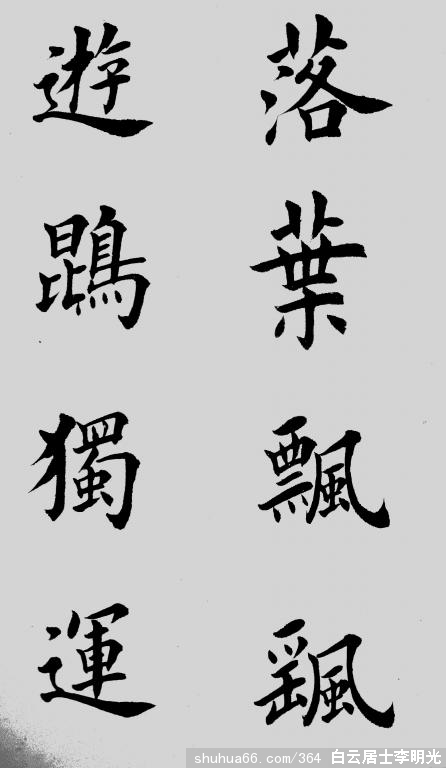 落葉飄颻
遊鵾獨運
shuhua66.com/364 白云居士李明光